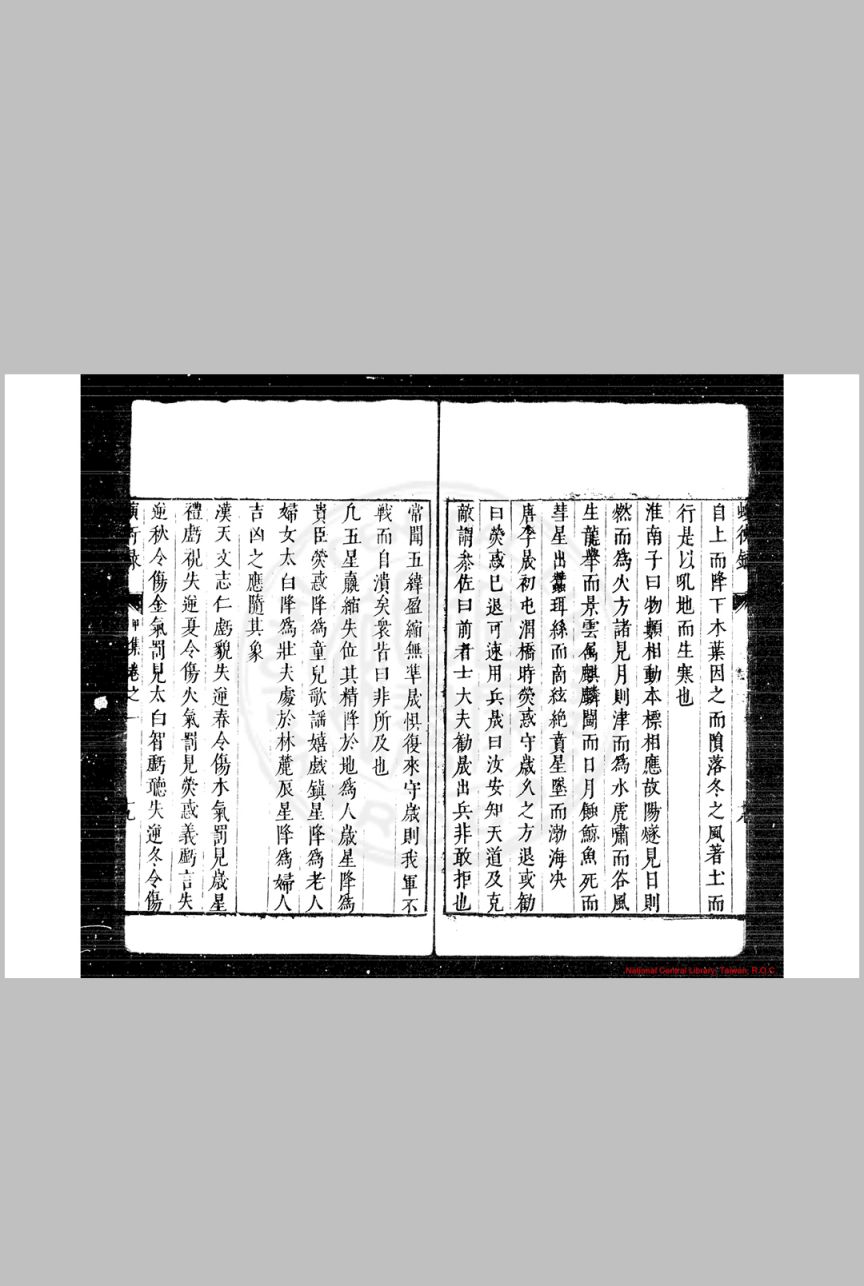 自上而降下木葉因之而隕落冬之風著土而
行是以吼地而生寒也
淮南子曰物類相動本標相應故陽燧見日則
燃而為火方諸見月則津而為水虎嘯而谷風
生龍舉而景雲屬麒麟鬭而日月蝕鯨魚死而
彗星出蠶珥絲而商絃絶賁星墜而渤海决
唐李晟初屯渭橋時熒惑守歲久之方退或勸
曰熒惑已退可速用兵晟曰汝安知天道及克
敵謂叅佐曰前者士大夫勸晟出兵非敢拒也
常聞五緯盈縮無準晟惧復來守歲則我軍不
戰而自潰矣衆皆曰非所及也
凢五星嬴縮失位其精降於地爲人歲星降爲
貴臣熒惑降爲童兒歌謡嬉戲鎮星降爲老人
婦女太白降爲壯夫處於林麓辰星降爲婦人
吉凶之應隨其象
漢天文志仁虧貌失逆春令傷木氣罰見歲星
禮虧視失逆夏令傷火氣罰見熒惑義虧言失
逆秋令傷金氣罰見太白智虧聽失逆冬令傷
甲集卷之一
National Central Library, Taiwan, R.O.C